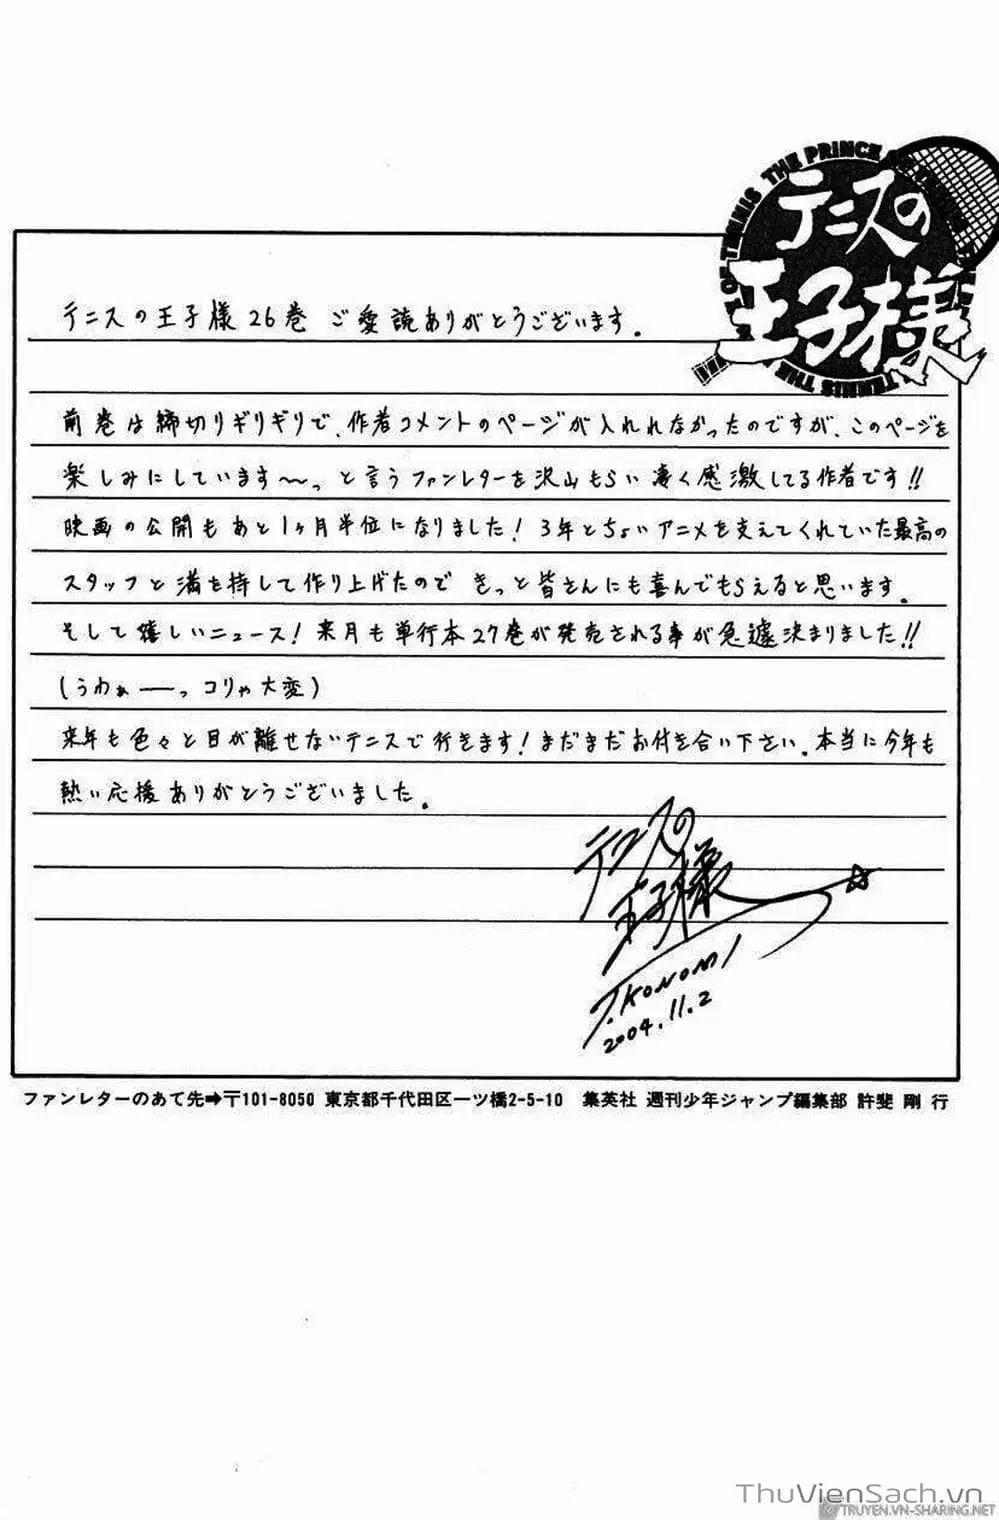 THE PRINCE OF TENNIS THE PRINCE OF TENNIS
テニスの
王子様
テニスの王子様26巻 ご愛読ありがとうございます。
前巻は締切りギリギリで、作者コメントのページが入れれなかったのですが、このページを
楽しみにしています〜っと言うファンレターを沢山もらい凄く感激してる作者です!!
映画の公開もあと1ヶ月単位になりました!3年とちょいアニメを支えてくれていた最高の
スタッフと満を持して作り上げたので きっと皆さんにも喜んでもらえると思います。
そして嬉しいニュース!来月も単行本27巻が発売される事が急遽決まりました!!
(うわぁーっコリゃ大変)
来年も色々と目が離せないテニスで行きます!まだまだお付き合い下さい。本当に今年も
熱い応援ありがとうございました。
テニスの
王子様
T.KONOMI
2004.11.2
ファンレターのあて先➡〒101-8050 東京都千代田区一ツ橋2-5-10 集英社 週刊少年ジャンプ編集部 許斐 剛 行
ThuVienSach.vn
TRUYEN.VN-SHARING.NET